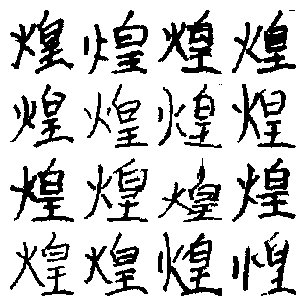 煌煌煌煌
煌煌煌煌
煌煌煌煌
煌煌煌惶